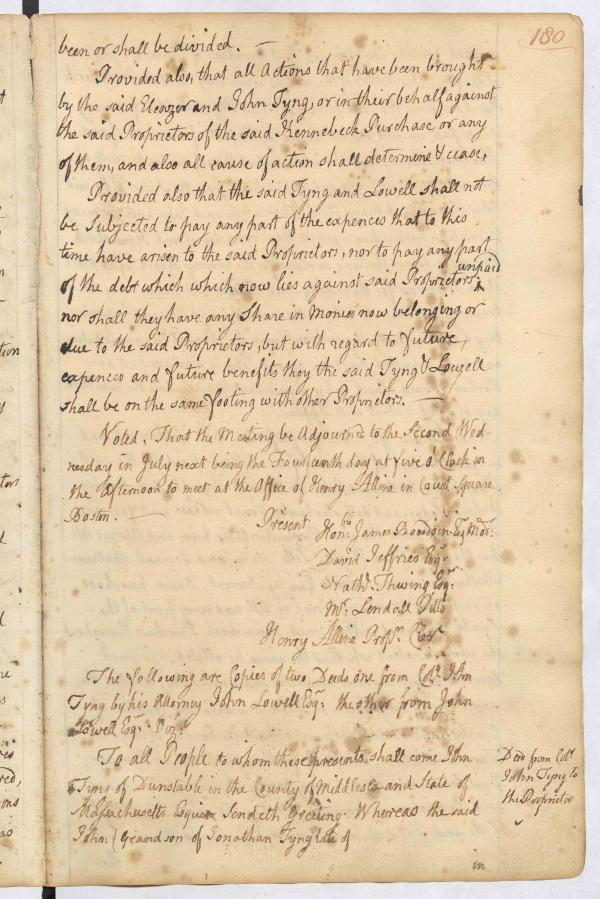 180
been or shall be divided. —
Provided also, that all Actions that have been brought
by the said Eleazer and John Tyng, or in their behalf against
the said Proprietors of the said Kennebeck Purchase or any
of them, and also all cause of action shall determine & cease,
Provided also that the said Tyng and Lowell shall not
be Subjected to pay any part of the expences that to this
time have arisen to the said Proprietors, nor to pay any part
of the debt which which now lies against said Proprietors ^ unpaid
nor shall they have any Share in Monies now belonging or
due to the said Proprietors, but with regard to future,
expences and future benefits they the said Tyng & Lowell
shall be on the same footing with other Proprietors. —
Voted, That the Meeting be Adjourned to the Second Wed-
nesday in July next being the Fourteenth day at five o Clock in
the Afternoon to meet at the Office of Henry Alline in Court Square
Boston. —
Present Honble James Bowdoin Esq Modr.
David Jeffries Esqr
Nathl. Thwing Esqr.
Mr. Lendall Pitts
Henry Alline Propsr. Clerk
The following are Copies of two Deeds one from Colo. John
Tyng by his Attorney John Lowell Esqr. the other from John
Lowell Esqr. Vizt.
To all People to whom these presents shall come John
Tyng of Dunstable in the County of Middlesex and State of
Massachusetts Esquire Sendeth Greeting. Whereas the said
John (Grandson of Jonathan Tyng late of
in
Deed from Colo.
John Tyng to
the Proprietors